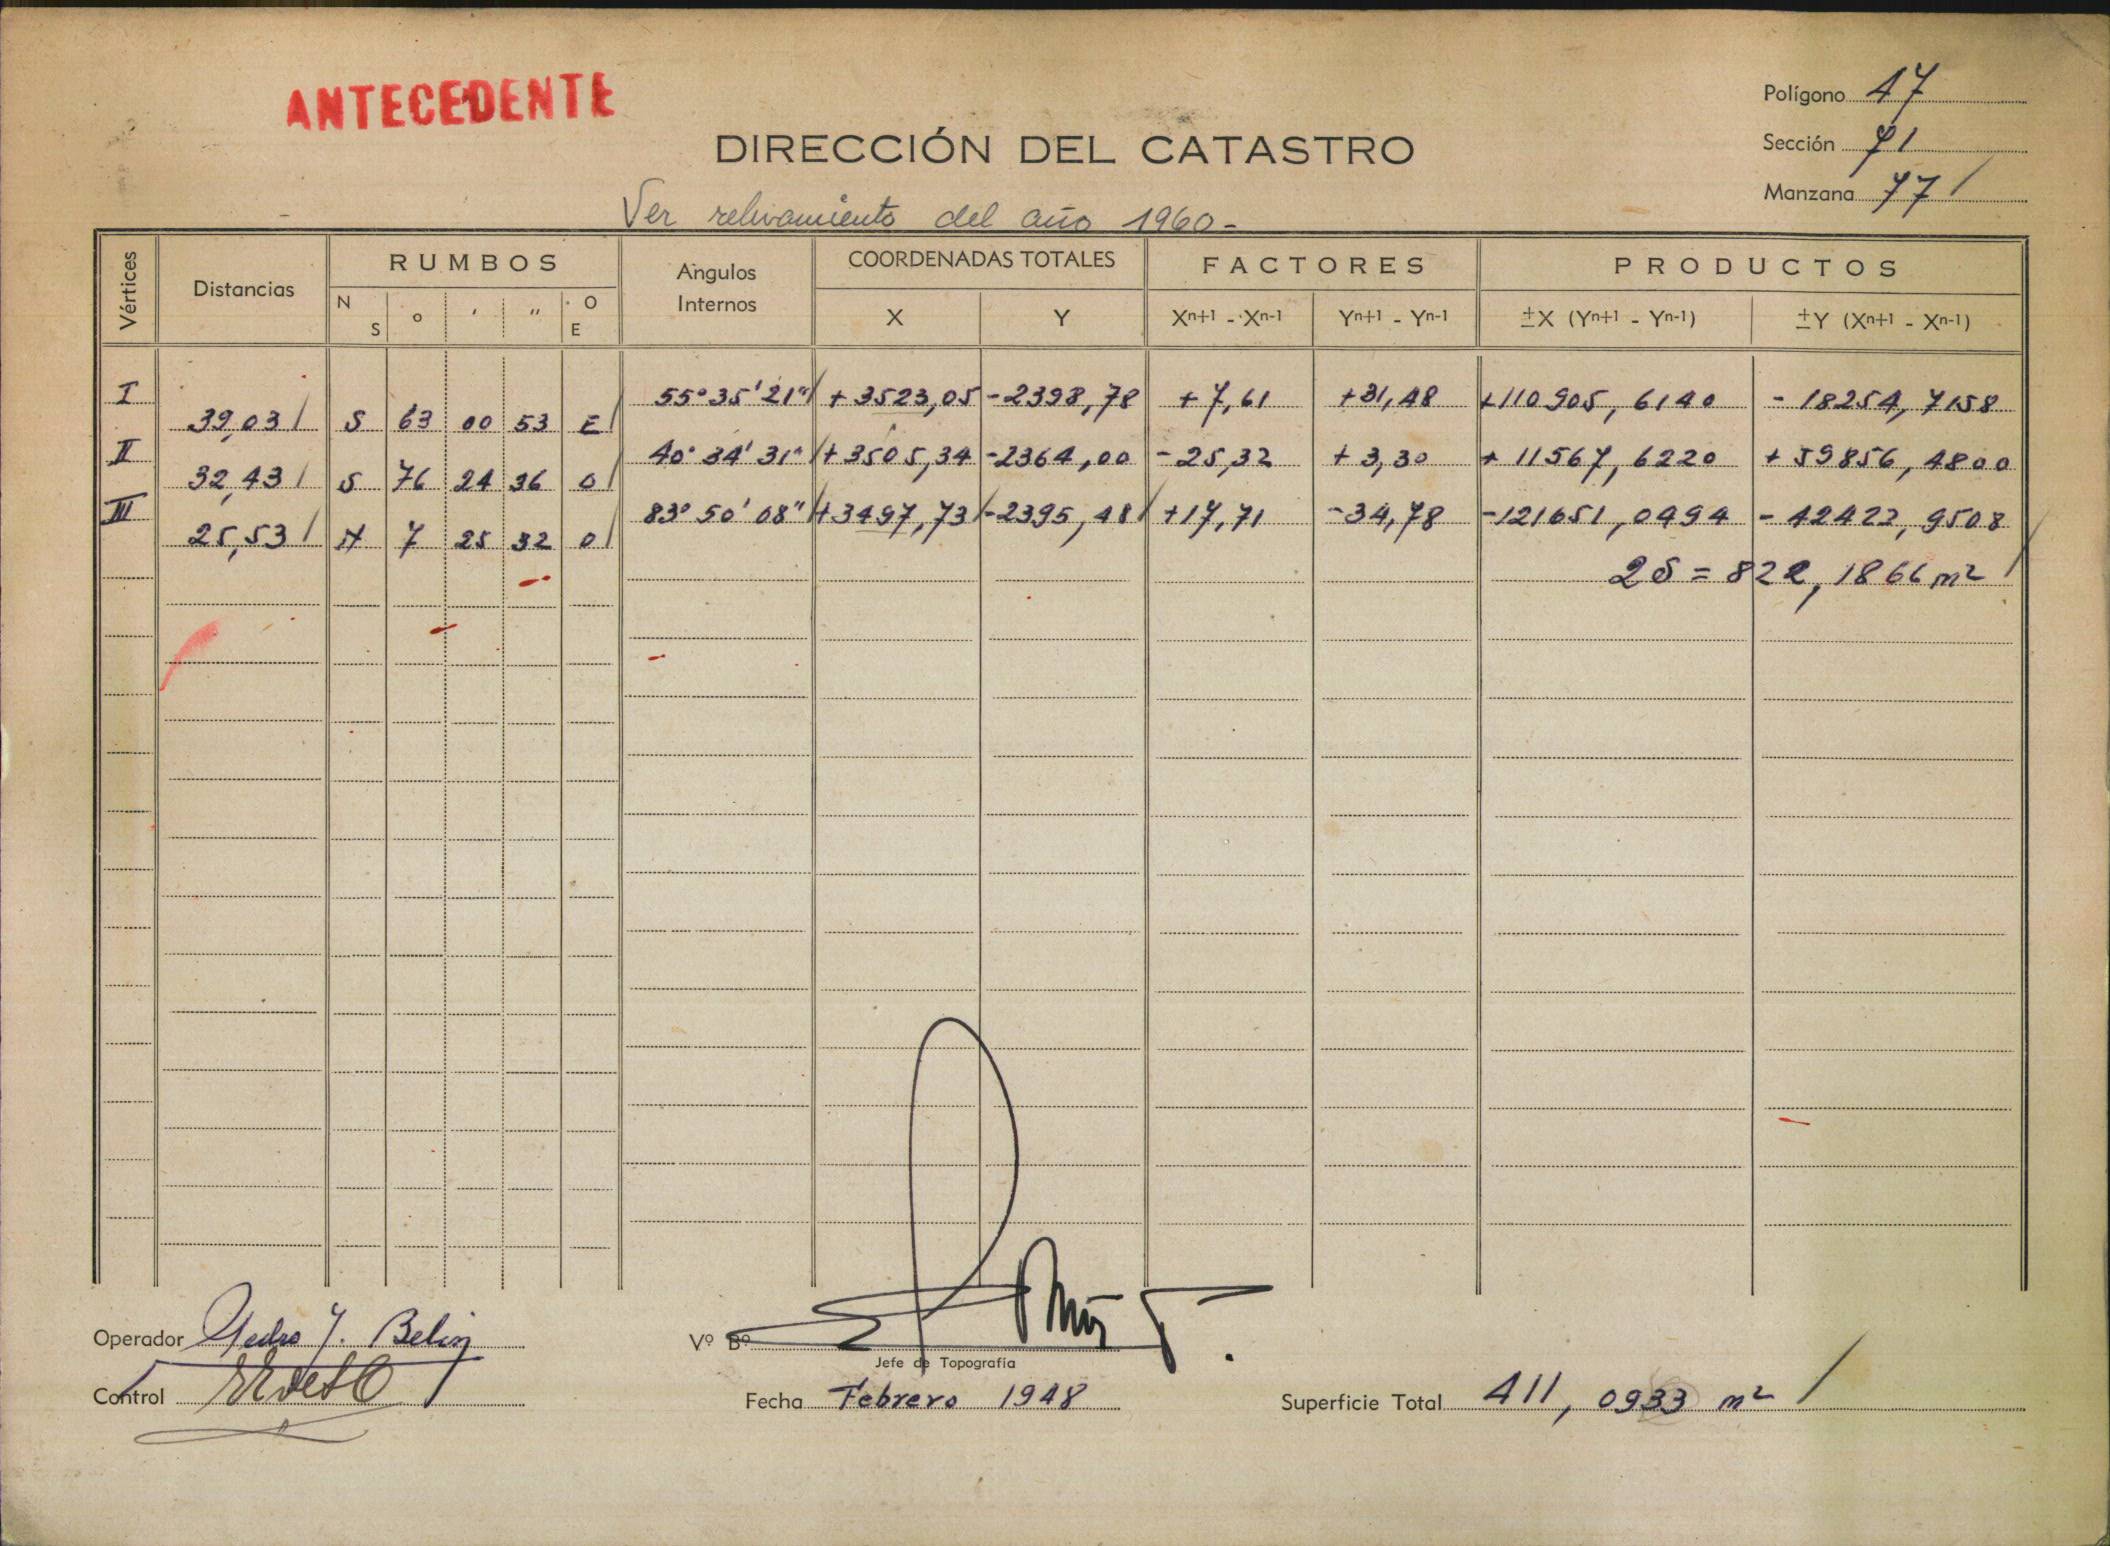 ANTECEDENTE
Polígono 47
DIRECCIÓN DEL CATASTRO
Sección 71
Manzana 77 /
Ver relevamiento del año 1960-
Vértices Distancias RUMBOS Angulos Internos COORDENADAS TOTALES FACTORES PRODUCTOS
N S o ' " O E X Y Xn+1 - Xn-1 Yn+1 - Yn-1 ±X (Yn+1 - Yn-1) ±Y (Xn+1 - Xn-1)
I 55° 35' 21" / + 3523,05 -2398,78 +7,61 +31,48 +110905,6140 - 18254,7158
39,03 / S 63 00 53 E /
II 40° 34' 31" / +3505,34 -2364,00 -25,32 +3,30 + 11567,6220 + 59856,4800
32,43 / S 76 24 36 O /
III 83° 50' 08" / +3497,73 / -2395,48 / +17,71 -34,78 -121651,0494 - 42423,9508
25,53 / N 7 25 32 O /
2S = 822,1866 m² /
Operador Pedro J. Belin
Vº Bº
Jefe de Topografía
Control
Fecha Febrero 1948
Superficie Total 411,0933 m² /